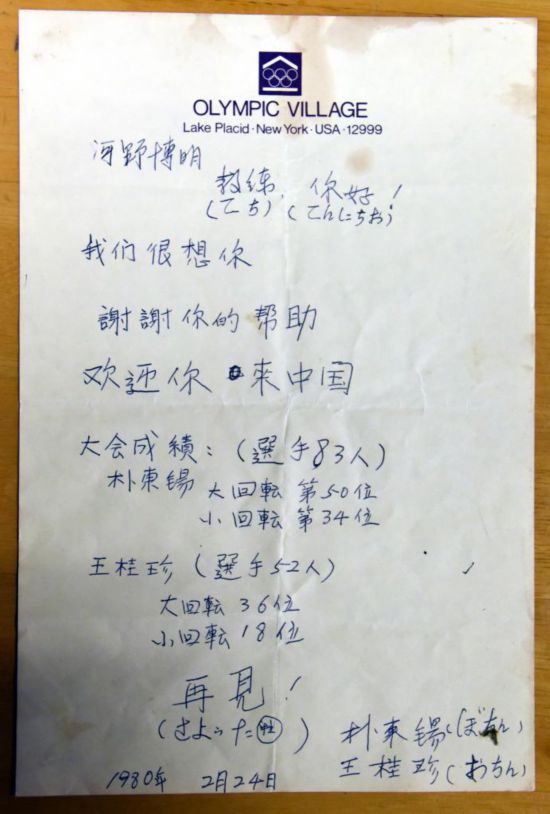 OLYMPIC VILLAGE
Lake Placid · New York · USA · 12999
河野博明
教练, 你好!
(こち) (こんにちわ)
我们很想你
謝謝你的帮助
欢迎你 来中国
大会成績: (選手83人)
朴東锡 大回転 第50位
小回転 第34位
王桂珍 (選手52人)
大回転 36位
小回転 18位
再見!
(さよ
朴東锡 (ぼちん)
王桂珍 (おちん)
1980年 2月24日